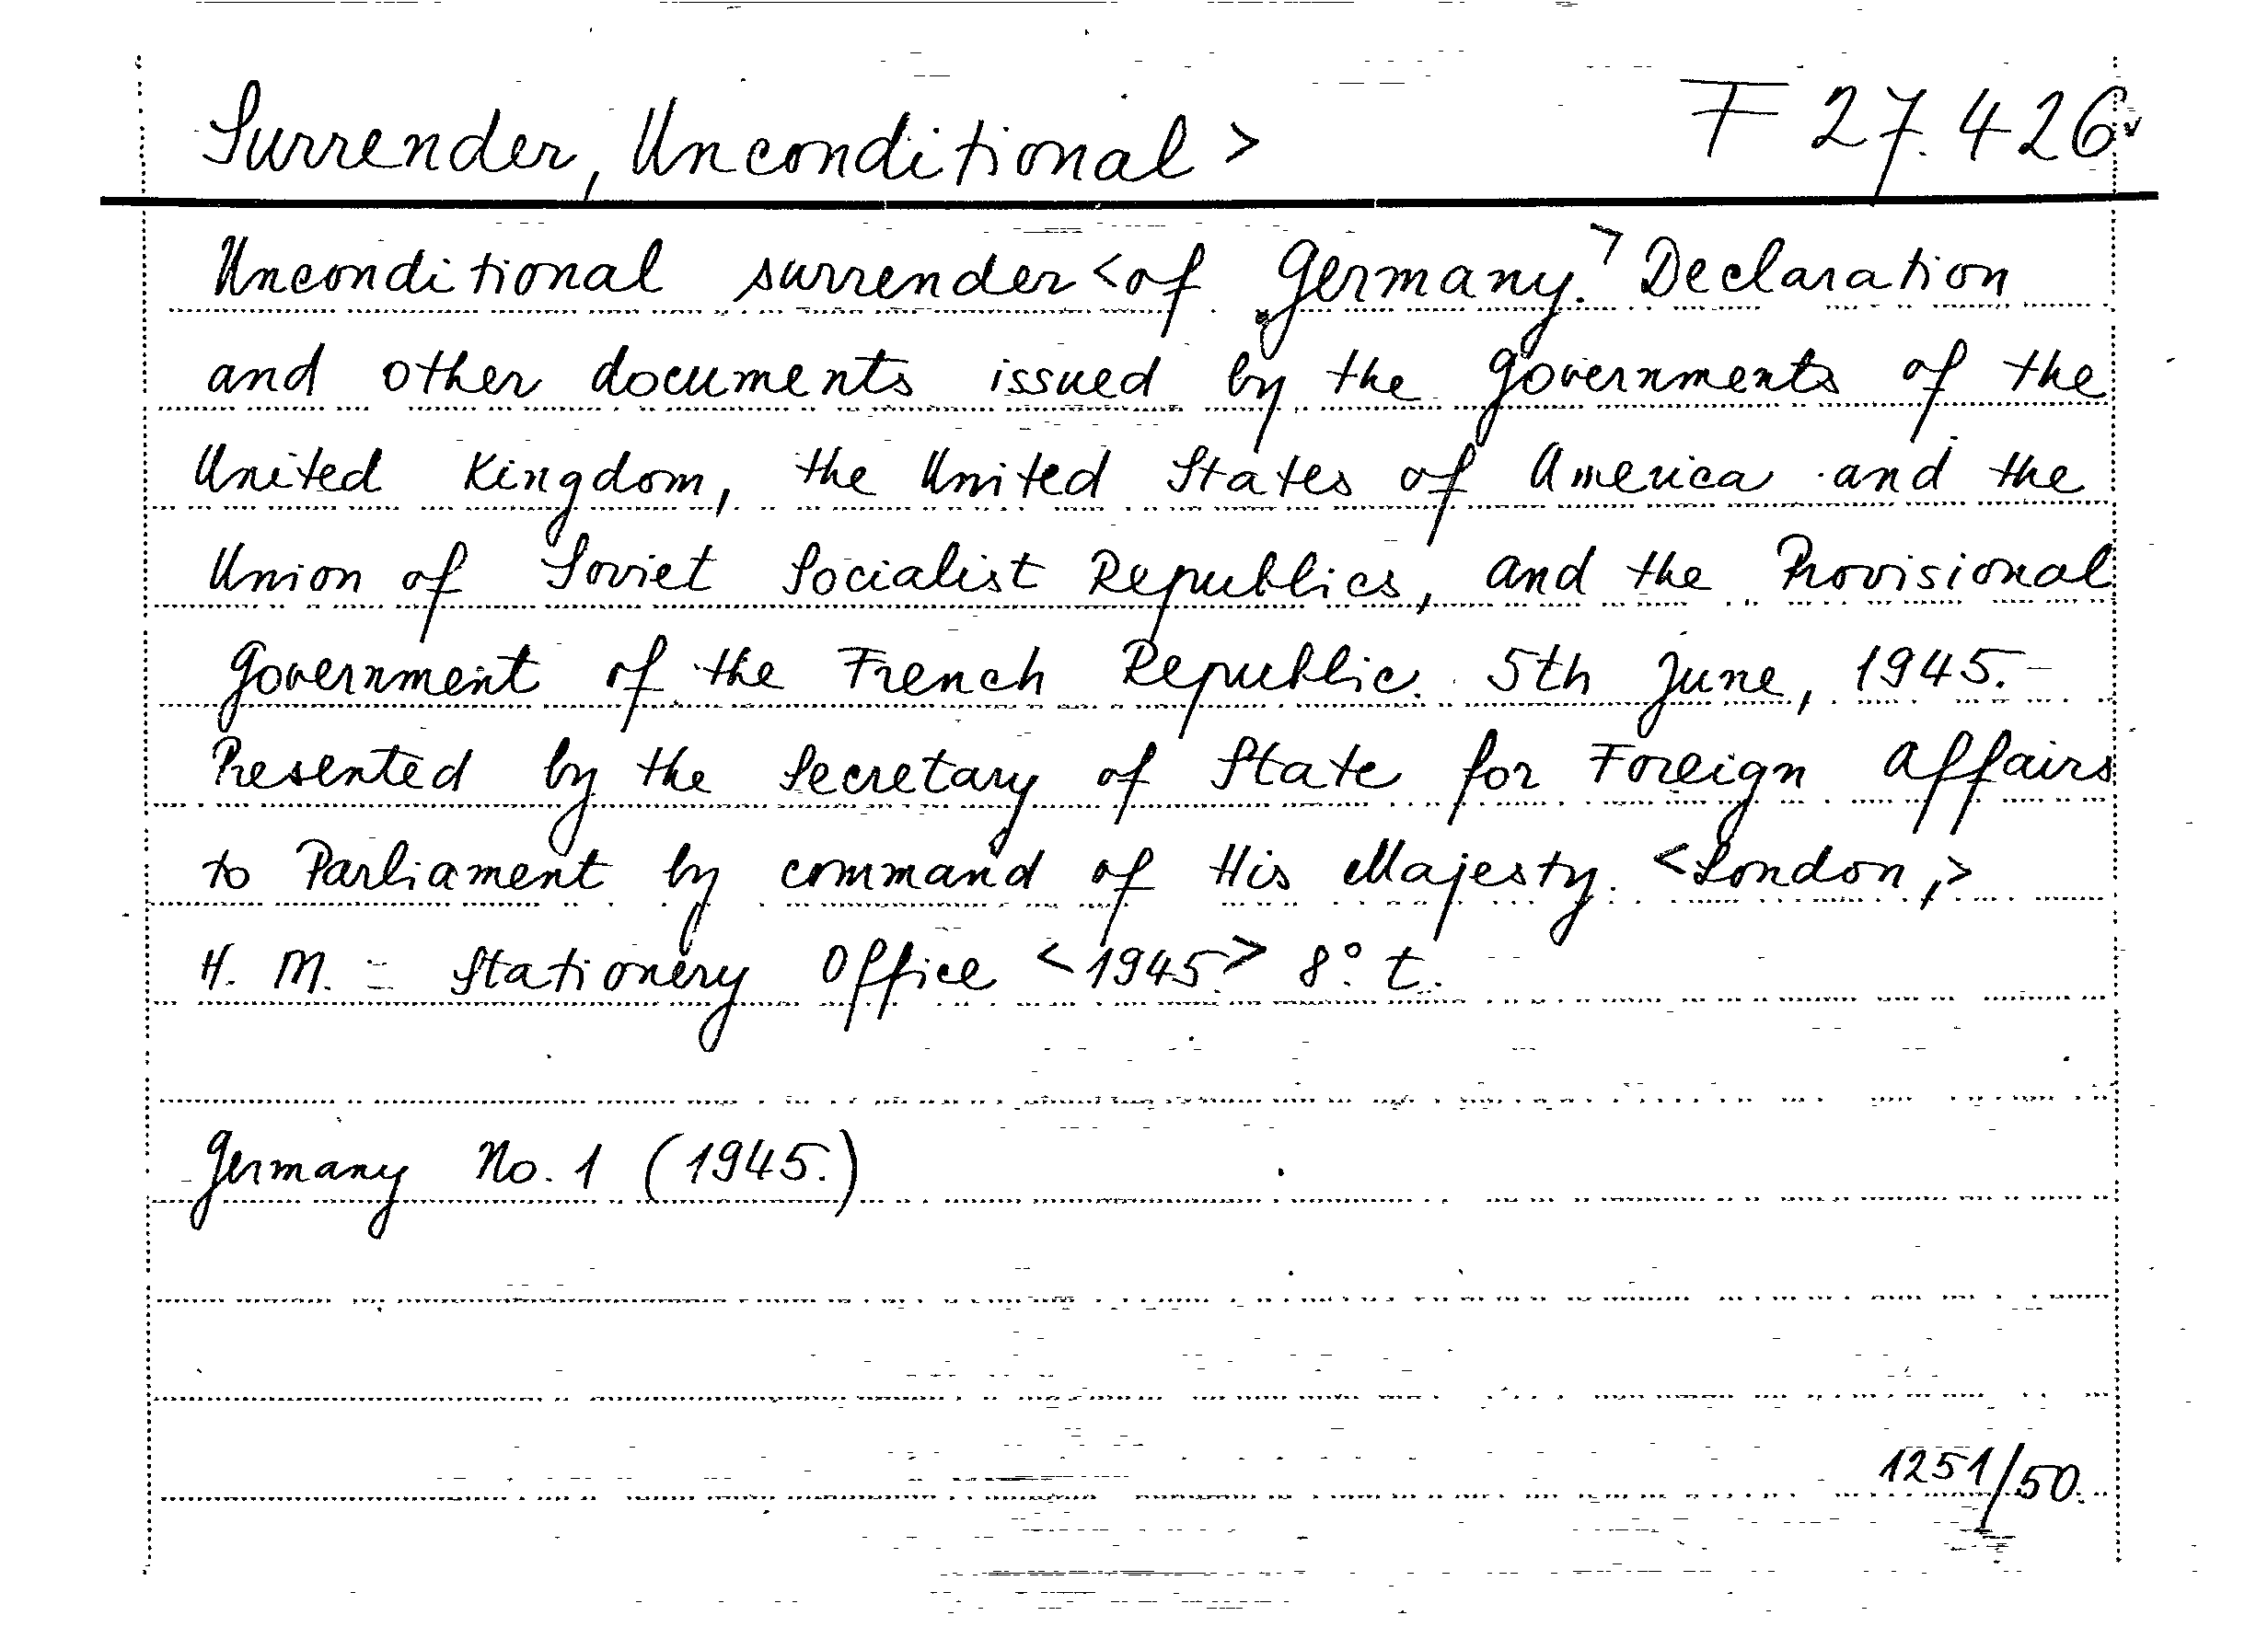 Surrender, Unconditional > F 27.426
Unconditional surrender <of Germany.> Declaration
and other documents issued by the governments of the
United Kingdom, the United States of America and the
Union of Soviet Socialist Republics, and the Provisional
Government of the French Republic. 5th June, 1945.-
Presented by the Secretary of State for Foreign Affairs
to Parliament by command of His Majesty. <London,>
H. M. = Stationery Office <1945> 8° t.
Germany No. 1 (1945.)
1251/50.